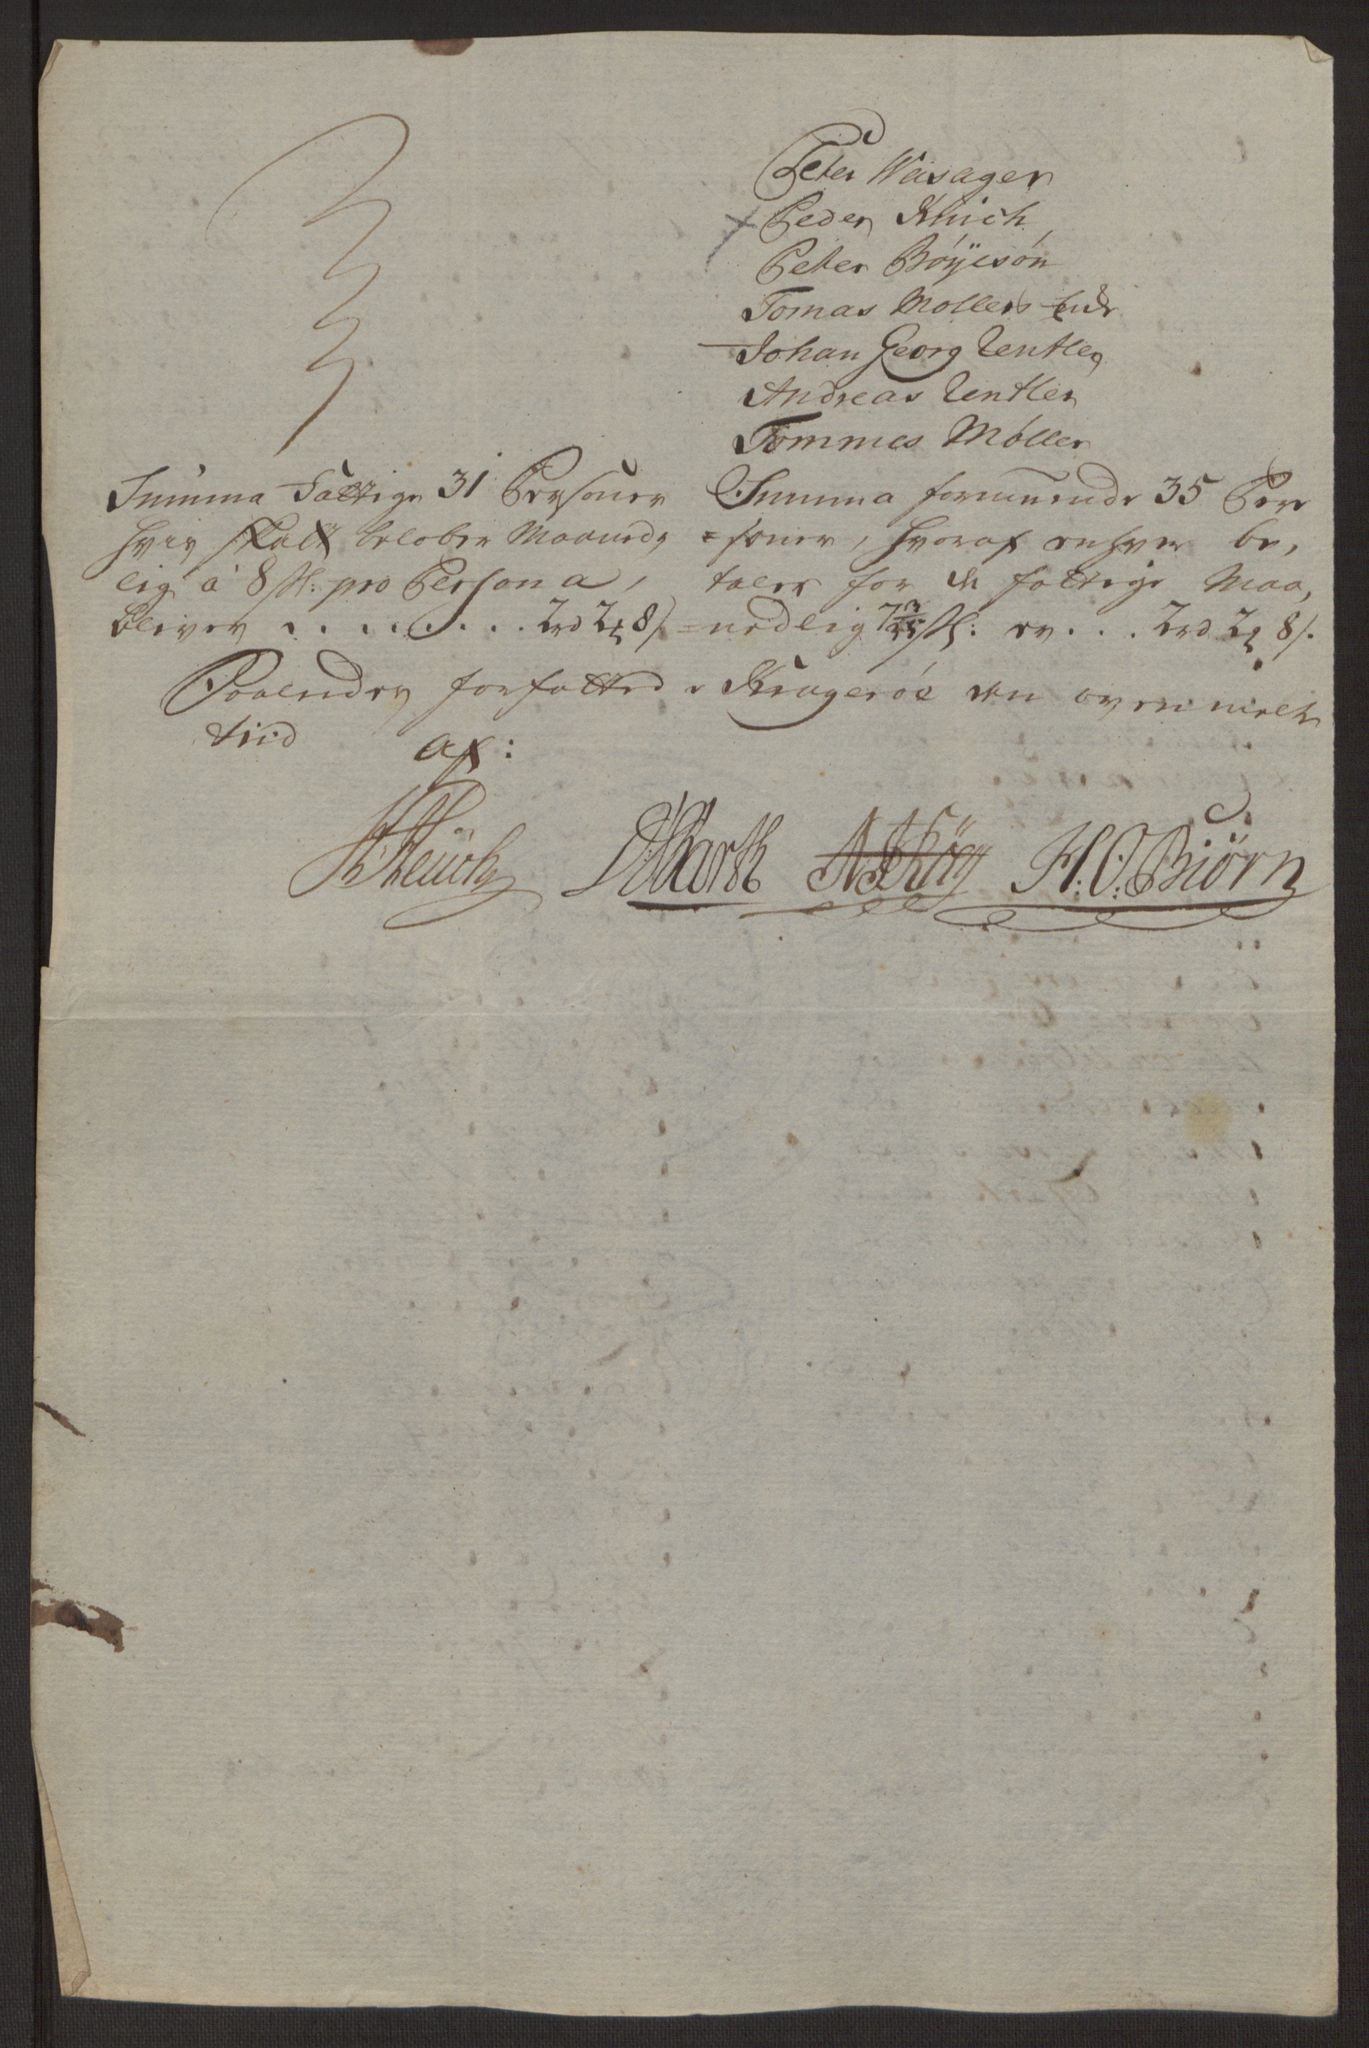 Peter Wasager
Peder Knich
Peter Böÿesön
Tomas Mollers Enke
Johan Georg Zentler
Andreas Zentler
Tommes Møller
Summa Fattige 31 Personer
hvis skatt beløber Maaned,
lig à 8 sk: pro Persona,
bliver . . . . . . . . 2rd 2 8/
Summa formuende 35 Per
=soner, hvoraf enhver be,
taler for de fattige Maa,
=nedlig 7 3/35 sk: er . . . 2rd 2 8/.
Saaledes forfatted i Kragerøe den ovenmelte
tiid af:
H. O. Biørn